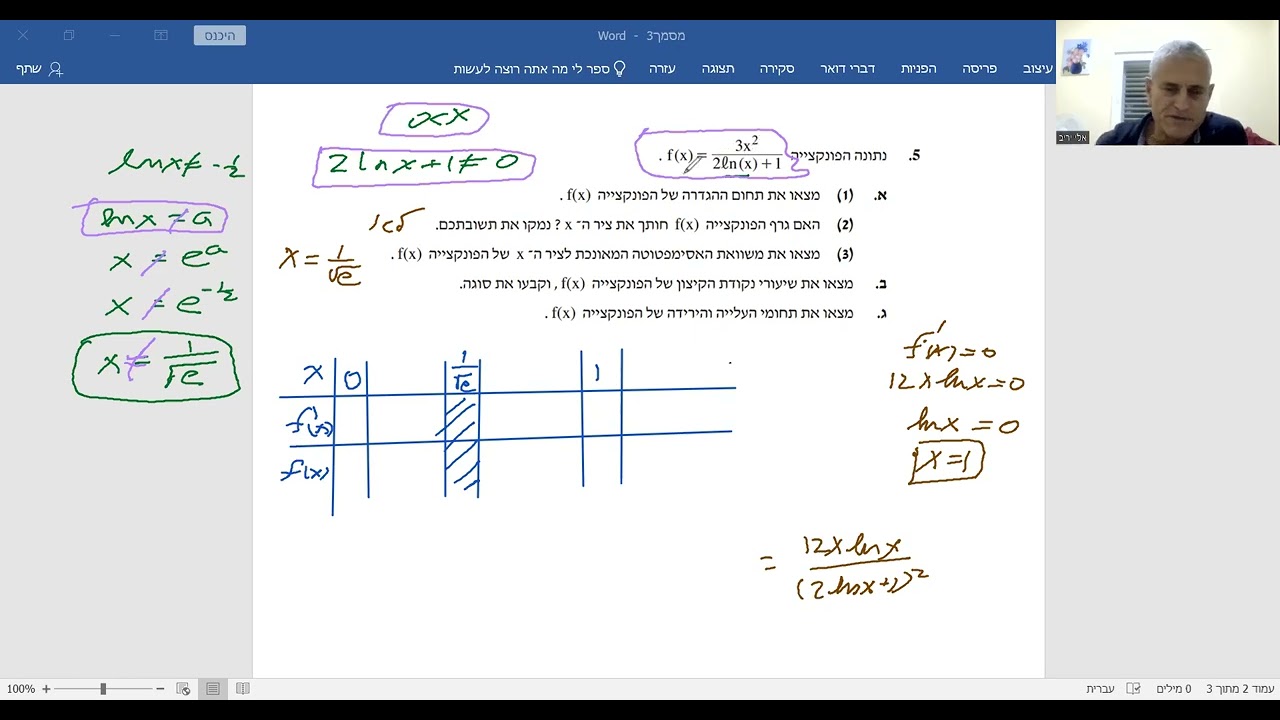 מסמך3 - Word
היכנס
עיצוב פריסה הפניות דברי דואר סקירה תצוגה עזרה ספר לי מה אתה רוצה לעשות
שתף
אלי יריב
0<x
2lnx+1≠0
lnx≠-½
lnx≠a
x≠e^a
x≠e^-½
x≠1/√e
5. נתונה הפונקצייה f(x) = 3x²/(2ℓn(x)+1) .
א. (1) מצאו את תחום ההגדרה של הפונקצייה f(x) .
(2) האם גרף הפונקצייה f(x) חותך את ציר ה־ x ? נמקו את תשובתכם.
לא
(3) מצאו את משוואת האסימפטוטה המאונכת לציר ה־ x של הפונקצייה f(x) .
x=1/√e
ב. מצאו את שיעורי נקודת הקיצון של הפונקצייה f(x) , וקבעו את סוגה.
ג. מצאו את תחומי העלייה והירידה של הפונקצייה f(x) .
x 0 1/√e 1
f'(x)
f(x)
f'(x)=0
12xlnx=0
lnx=0
x=1
= 12xlnx/(2lnx+1)²
100%
עמוד 2 מתוך 3 0 מילים עברית